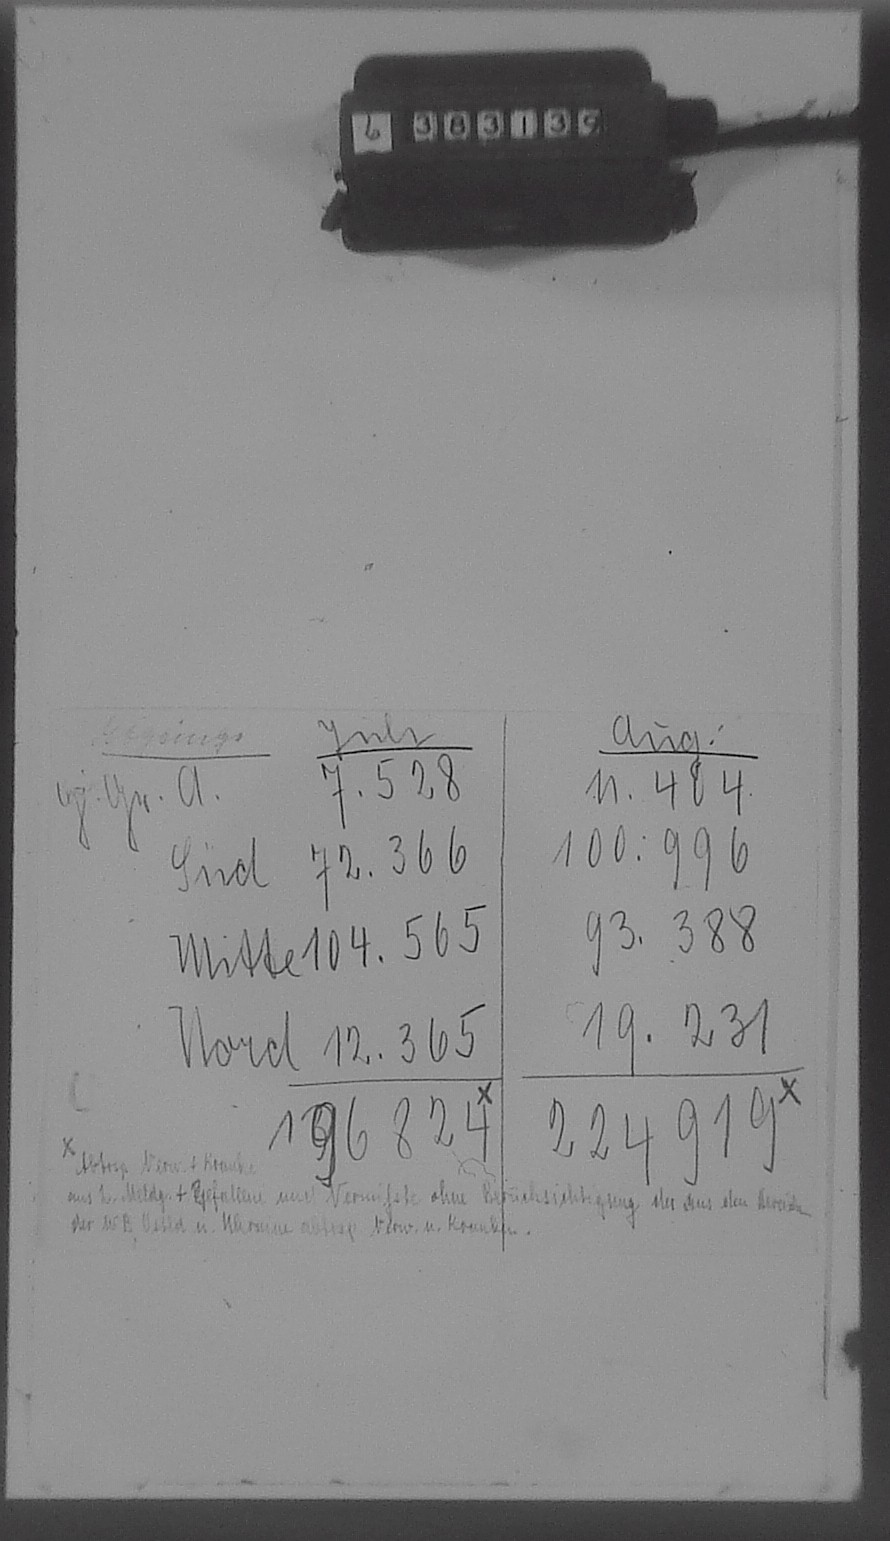 6 383139
Juli | Aug.
H.Gr. A. 7.528 | 11.484
Süd 72.366 | 100.996
Mitte 104.565 | 93.388
Nord 12.365 | 19.231
196 824 x | 224 919 x
x Abtrsp. Verw. + Kranke
aus h. Meldg. + Gefallene und Vermißte ohne Berücksichtigung der aus dem Bereich
der WB. Ostld u. Ukraine abtrsp. Verw. u. Kranken.